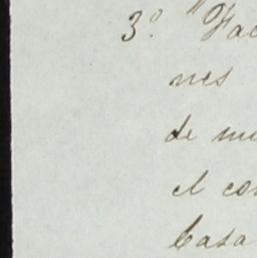 3º "Fac
nes
de mu
el con
Casa